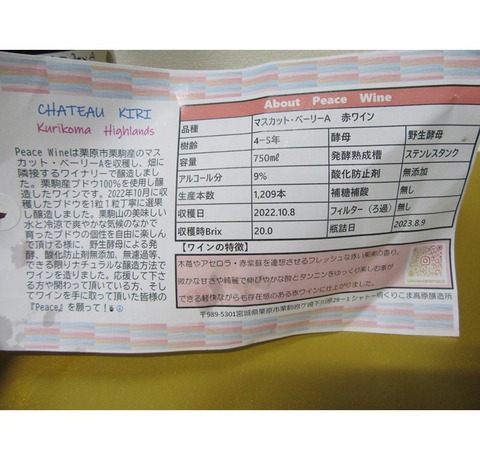 CHATEAU KIRI
Kurikoma Highlands
Peace Wineは栗原市栗駒産のマス
カット・ベーリーAを収穫し、畑に
隣接するワイナリーで醸造しまし
た。栗駒産ブドウ100%を使用し醸
造したワインです。2022年10月に収
穫したブドウを1粒1粒丁寧に選果
し醸造しました。栗駒山の美味しい
水と冷涼で爽やかな気候のなかで
育ったブドウの個性を自由に楽しん
で頂ける様に、野生酵母による発
酵、酸化防止剤無添加、無濾過等、
できる限りナチュラルな醸造方法で
ワインを造りました。応援して下さ
る方や関わって頂いている方、そし
てワインを手に取って頂いた皆様の
『Peace』を願って！
About Peace Wine
品種 マスカット・ベーリーA 赤ワイン
樹齢 4−5年 酵母 野生酵母
容量 750㎖ 発酵熟成槽 ステンレスタンク
アルコール分 9% 酸化防止剤 無添加
生産本数 1,209本 補糖補酸 無し
収穫日 2022.10.8 フィルター（ろ過） 無し
収穫時Brix 20.0 瓶詰日 2023.8.9
【ワインの特徴】
木苺やアセロラ・赤紫蘇を連想させるフレッシュな赤い果実の香り。
微かな甘さや綺麗で伸びやかな酸とタンニンをゆっくり楽しむ事が
できる軽快ながらも存在感のある赤ワインに仕上がりました。
〒989-5301宮城県栗原市栗駒岩ケ崎下川原29−1 シャトー桐くりこま高原醸造所